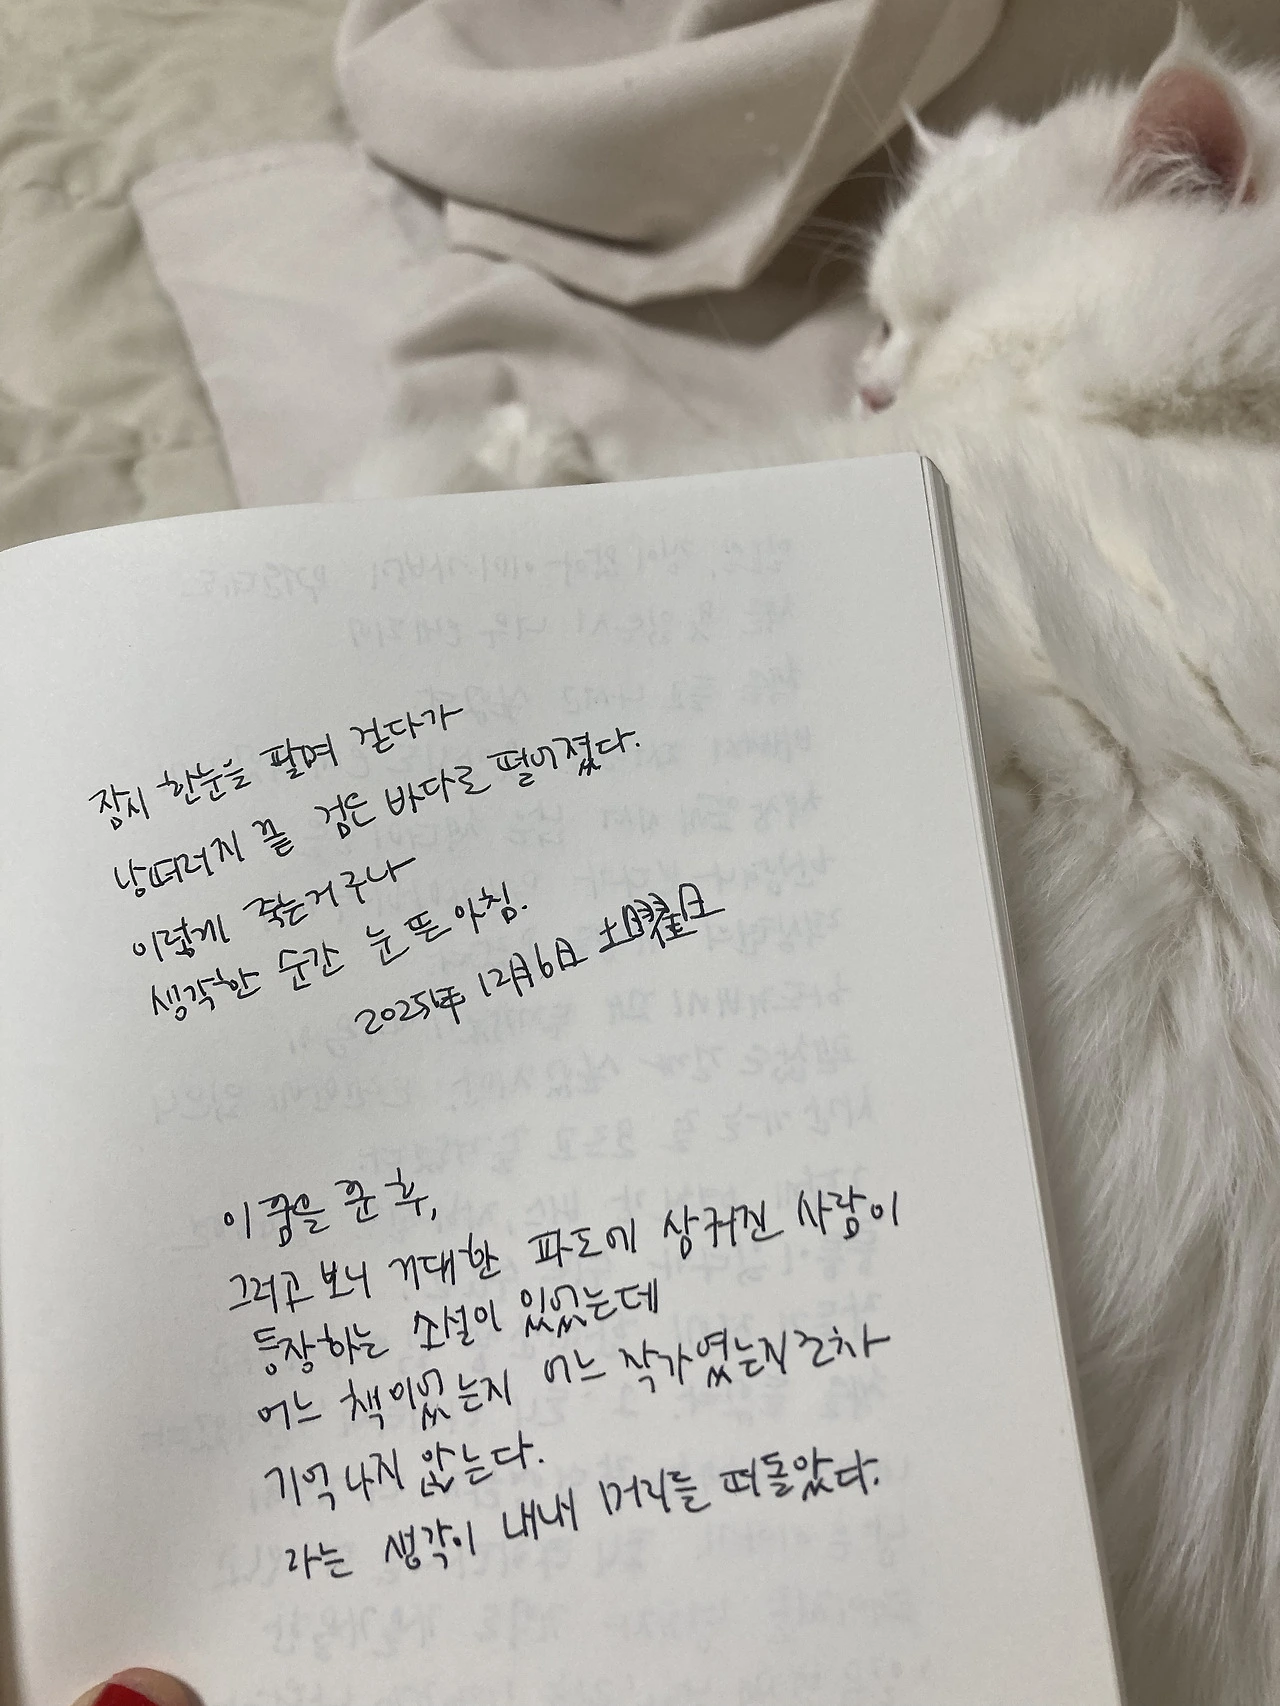 잠시 한눈을 팔며 걷다가
낭떠러지 끝 검은 바다로 떨어졌다.
이렇게 죽는거구나
생각한 순간 눈 뜬 아침.
2025年 12月 6日 土曜日
이 꿈을 꾼 후,
그러고 보니 거대한 파도에 삼켜진 사람이
등장하는 소설이 있었는데
어느 책이었는지 어느 작가였는지조차
기억나지 않는다.
라는 생각이 내내 머리를 떠돌았다.